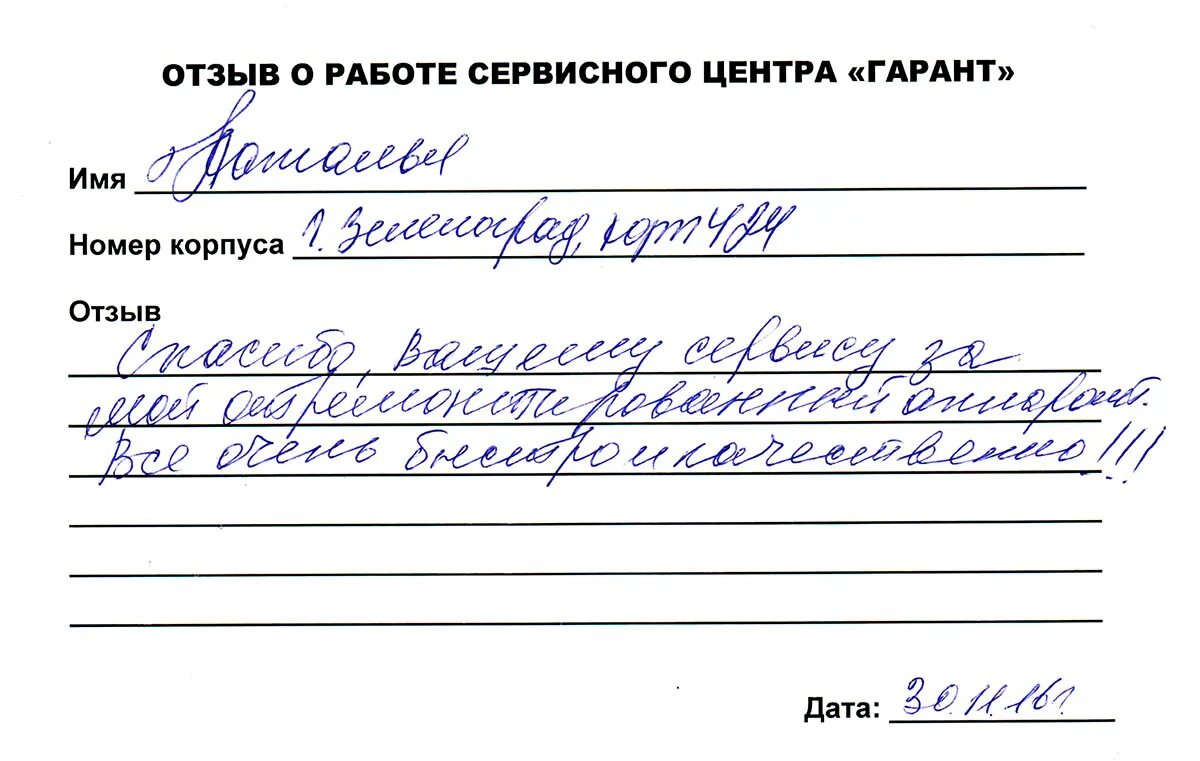 ОТЗЫВ О РАБОТЕ СЕРВИСНОГО ЦЕНТРА «ГАРАНТ»
Имя Наталья
Номер корпуса г. Зеленоград, корп 424
Отзыв
Спасибо, Вашему сервису за
мой отремонтированный аппарат.
Все очень быстро и качественно!!!
Дата: 30.11.16г.